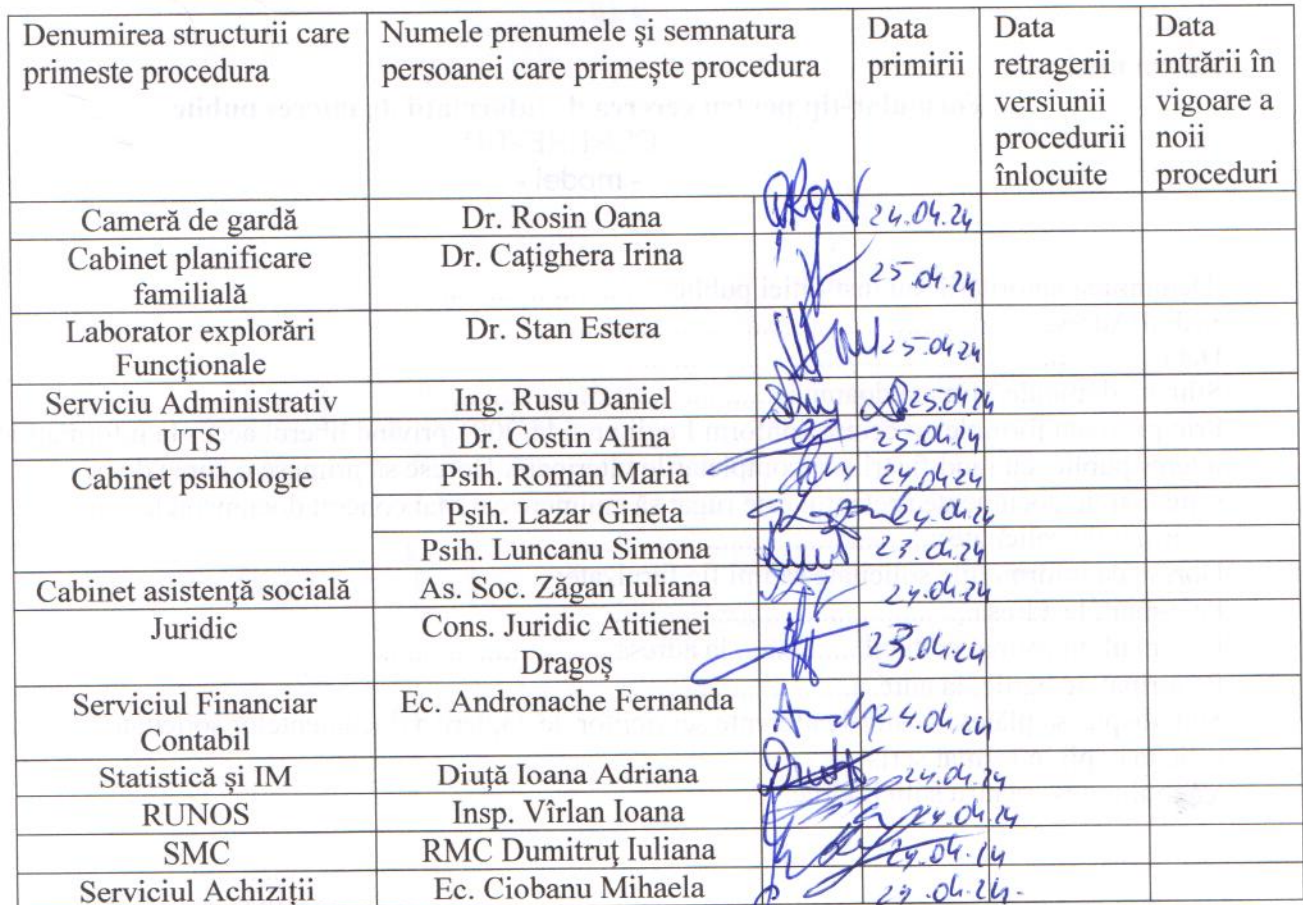 Denumirea structurii care primeste procedura
Numele prenumele și semnatura persoanei care primește procedura
Data primirii
Data retragerii versiunii procedurii înlocuite
Data intrării în vigoare a noii proceduri
Cameră de gardă Dr. Rosin Oana 24.04.24
Cabinet planificare familială Dr. Cațighera Irina 25.04.24
Laborator explorări Funcționale Dr. Stan Estera 25.04.24
Serviciu Administrativ Ing. Rusu Daniel 25.04.24
UTS Dr. Costin Alina 25.04.24
Cabinet psihologie Psih. Roman Maria 24.04.24
Psih. Lazar Gineta 24.04.24
Psih. Luncanu Simona 23.04.24
Cabinet asistență socială As. Soc. Zăgan Iuliana 24.04.24
Juridic Cons. Juridic Atitienei Dragoș 23.04.24
Serviciul Financiar Contabil Ec. Andronache Fernanda 24.04.24
Statistică și IM Diuță Ioana Adriana 24.04.24
RUNOS Insp. Vîrlan Ioana 24.04.24
SMC RMC Dumitruţ Iuliana 24.04.24
Serviciul Achiziții Ec. Ciobanu Mihaela 24.04.24.